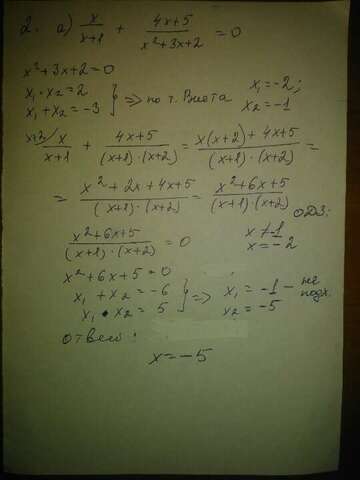 2. а) x/(x+1) + (4x+5)/(x²+3x+2) = 0
x²+3x+2=0
x₁·x₂=2
x₁+x₂=-3 } ⇒ по т. Виета x₁=-2; x₂=-1
x+2/ x/(x+1) + (4x+5)/((x+1)·(x+2)) = (x(x+2)+4x+5)/((x+1)·(x+2)) =
= (x²+2x+4x+5)/((x+1)·(x+2)) = (x²+6x+5)/((x+1)(x+2))
ОДЗ:
(x²+6x+5)/((x+1)·(x+2)) = 0 x≠-1
x=-2
x²+6x+5=0
x₁+x₂=-6
x₁·x₂=5 } ⇒ x₁=-1 – не подх.
x₂=-5
ответ:
x=-5